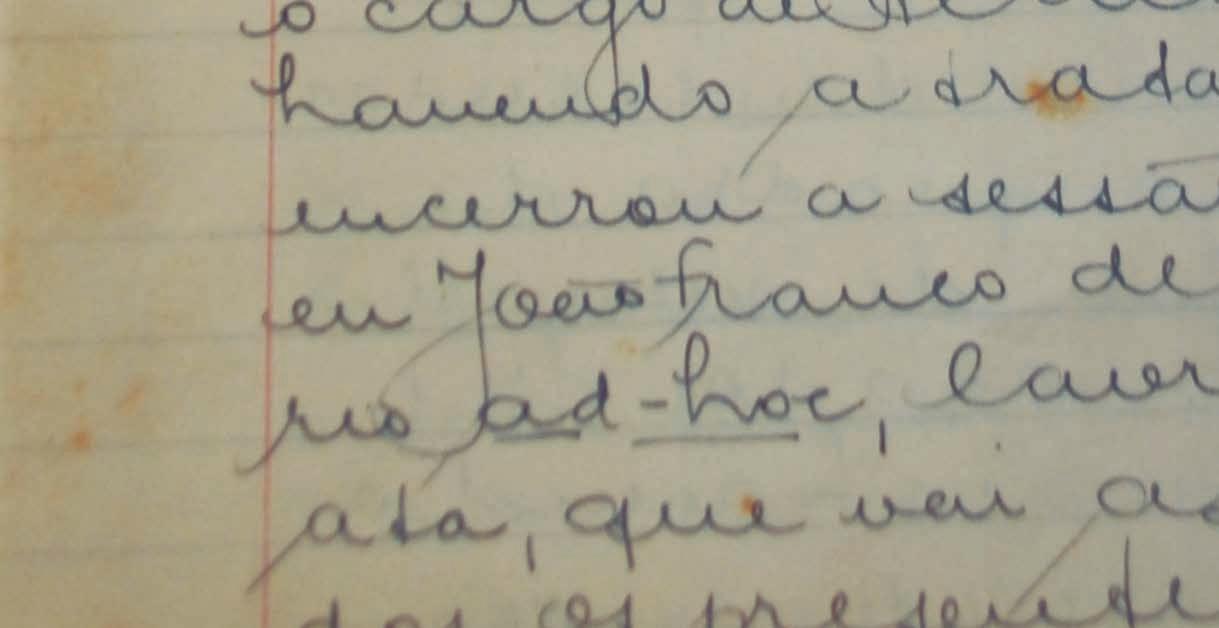 o cargo de
havendo a trata
encerrou a sessã
eu João Franco de
rio ad-hoc, lavr
ata, que vai as
dos os presente